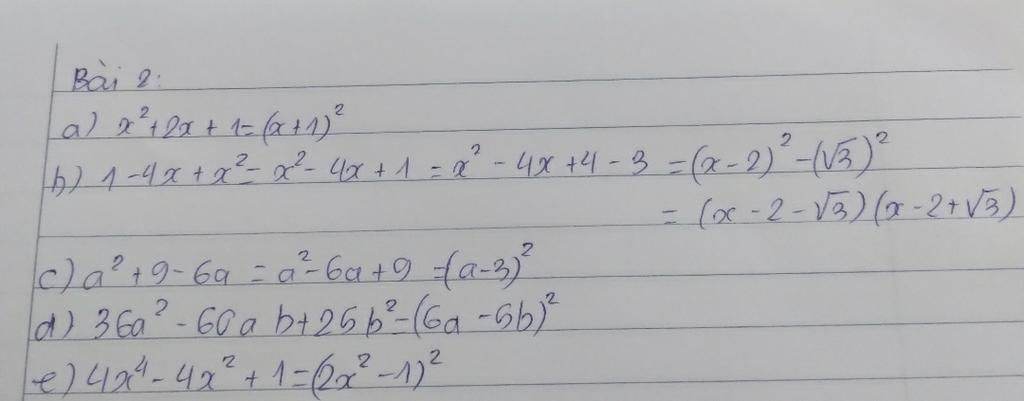 Bài 2:
a) x²+2x+1=(x+1)²
b) 1-4x+x²=x²-4x+1=x²-4x+4-3=(x-2)²-(√3)²
=(x-2-√3)(x-2+√3)
c) a²+9-6a=a²-6a+9=(a-3)²
d) 36a²-60ab+25b²=(6a-5b)²
e) 4x⁴-4x²+1=(2x²-1)²